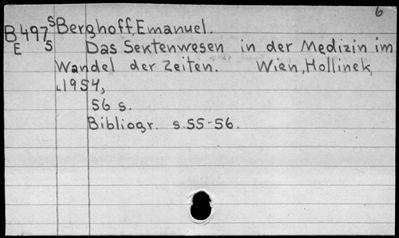 6
B497S Berghoff, Emanuel.
E S Das Sektenwesen in der Medizin im
Wandel der Zeiten. Wien, Hollinek,
1954,
56 s.
Bibliogr. s.55-56.